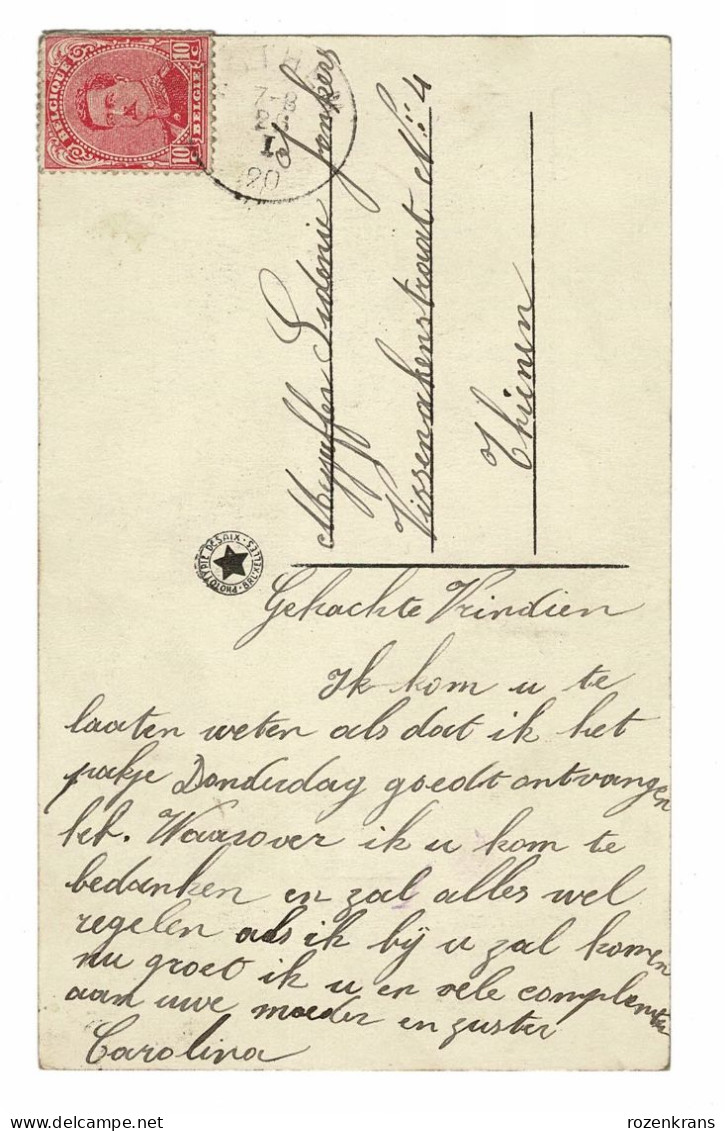 BELGIQUE
BELGIË
10 C 10 C
7-8
26
I
20
Mejuffer Sidonie Jonkers
Vissenakenstraat N: 4
Thienen
PHOTOTYPIE DESAIX - BRUXELLES
Gekachte Vrindien
Ik kom u te
laaten weten als dat ik het
pakje Donderdag goedt ontvangen
heb. Waarover ik u kom te
bedanken en zal alles wel
regelen als ik bij u zal komen
nu groet ik u en vele complenten
aan uwe moeder en zuster
Carolina
rozenkrans